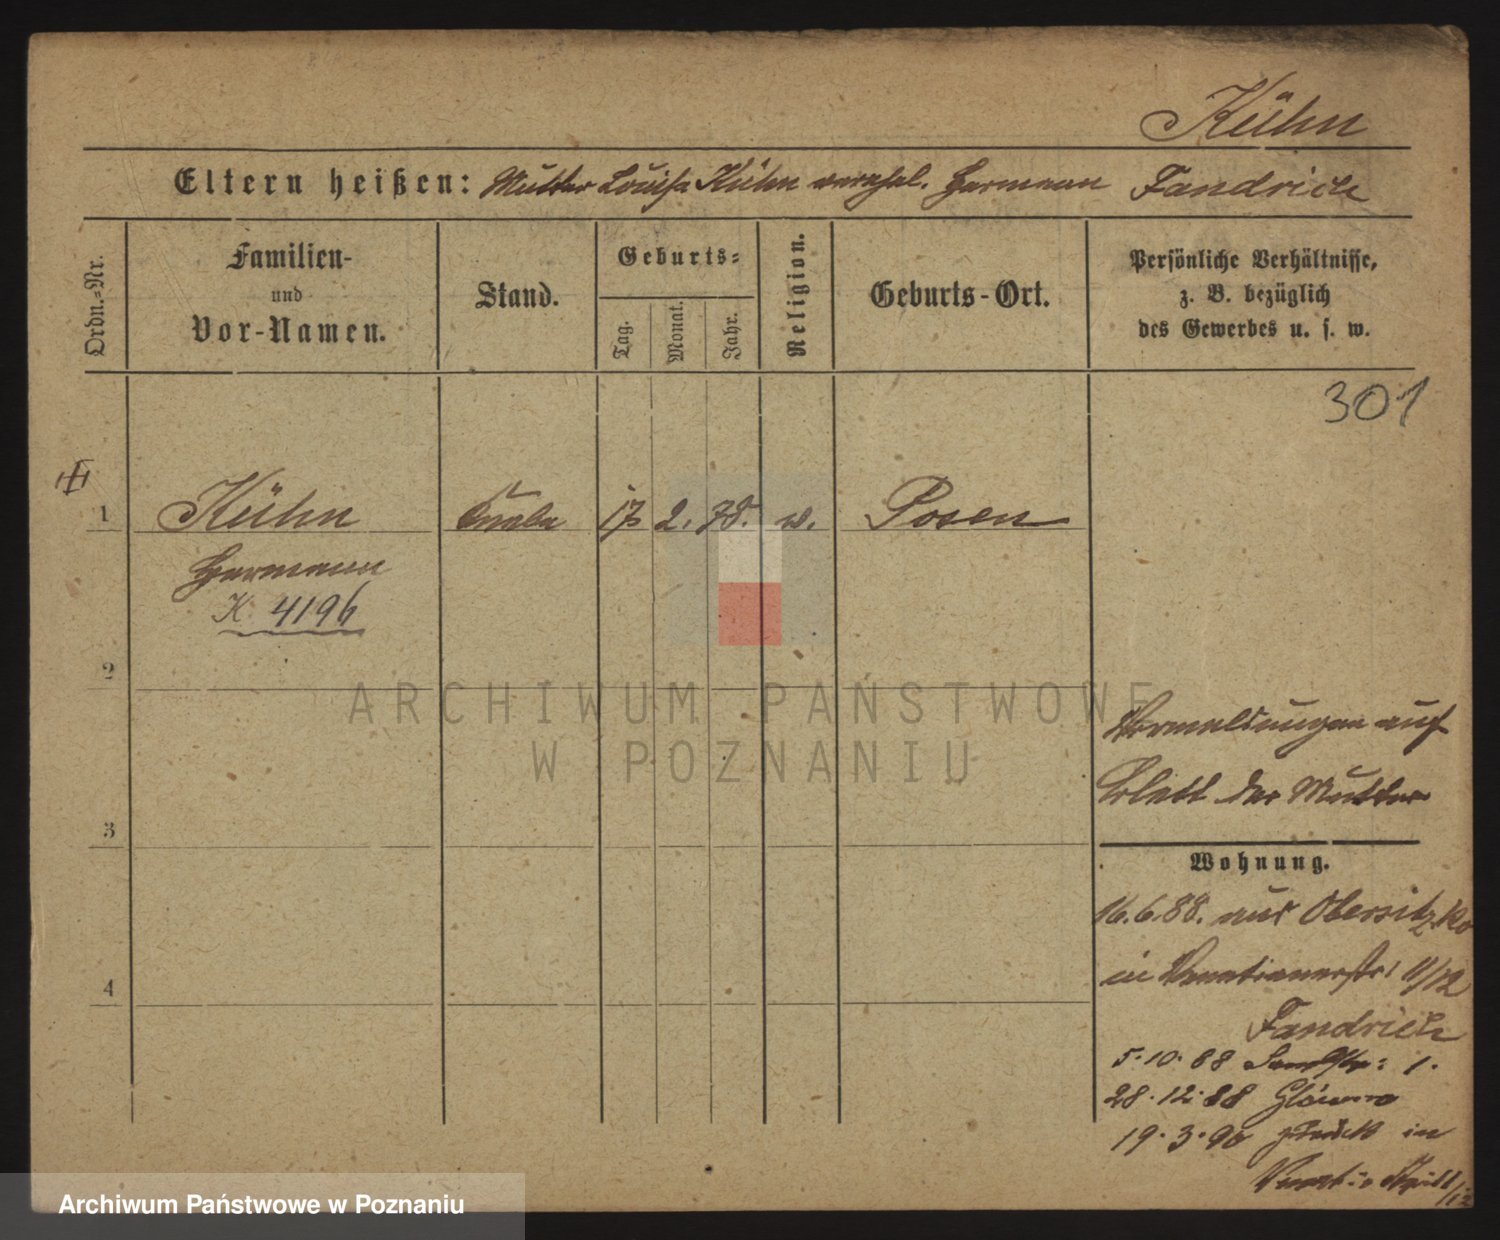 Kühn
Eltern heißen: Mutter Louise Kühn verehel. Hermann Fandrich
Ordn.-Nr.
Familien-
und
Vor-Namen.
Stand.
Geburts-
Tag.
Monat.
Jahr.
Religion.
Geburts-Ort.
Persönliche Verhältnisse,
z. B. bezüglich
des Gewerbes u. s. w.
301
1 Kühn Knabe 17 2. 78. Posen
Hermann
K. 4196
2
ARCHIWUM PAŃSTWOWE
W POZNANIU
auf
Blatt der Mutter
3
Wohnung.
16.6.88. aus Obersitzko
4
in Venetianerstr. 11/12
Fandrich
5.10.88 Sandstr: 1.
28.12.88 Glówno
19.3.90 zurück in
Archiwum Państwowe w Poznaniu